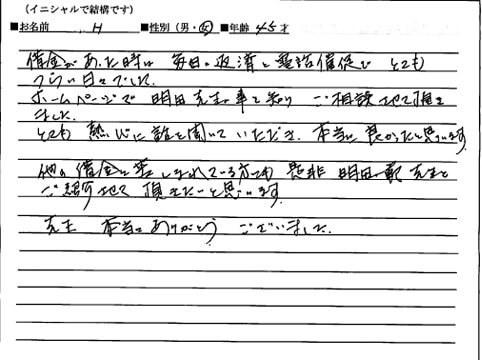 (イニシャルで結構です)
■お名前 H ■性別(男・女)■年齢 45才
借金があった時は 毎日の返済と電話催促で とても
つらい日々でした。
ホームページで 明田先生の事を知り ご相談させて頂き
ました。
とても 熱心に話を聞いていただき、本当に良かったと思います。
他の借金に苦しまれている方にも 是非 明田 先生を
ご紹介させて 頂きたいと思います。
先生 本当に ありがとう ございました。